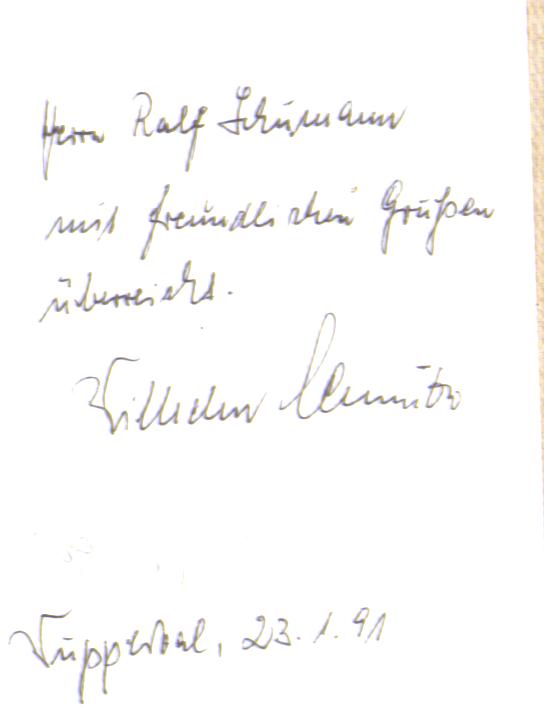 Herrn Ralf Schumann
mit freundlichen Grüßen
überreicht.
Wilhelm
Wuppertal, 23.1.91